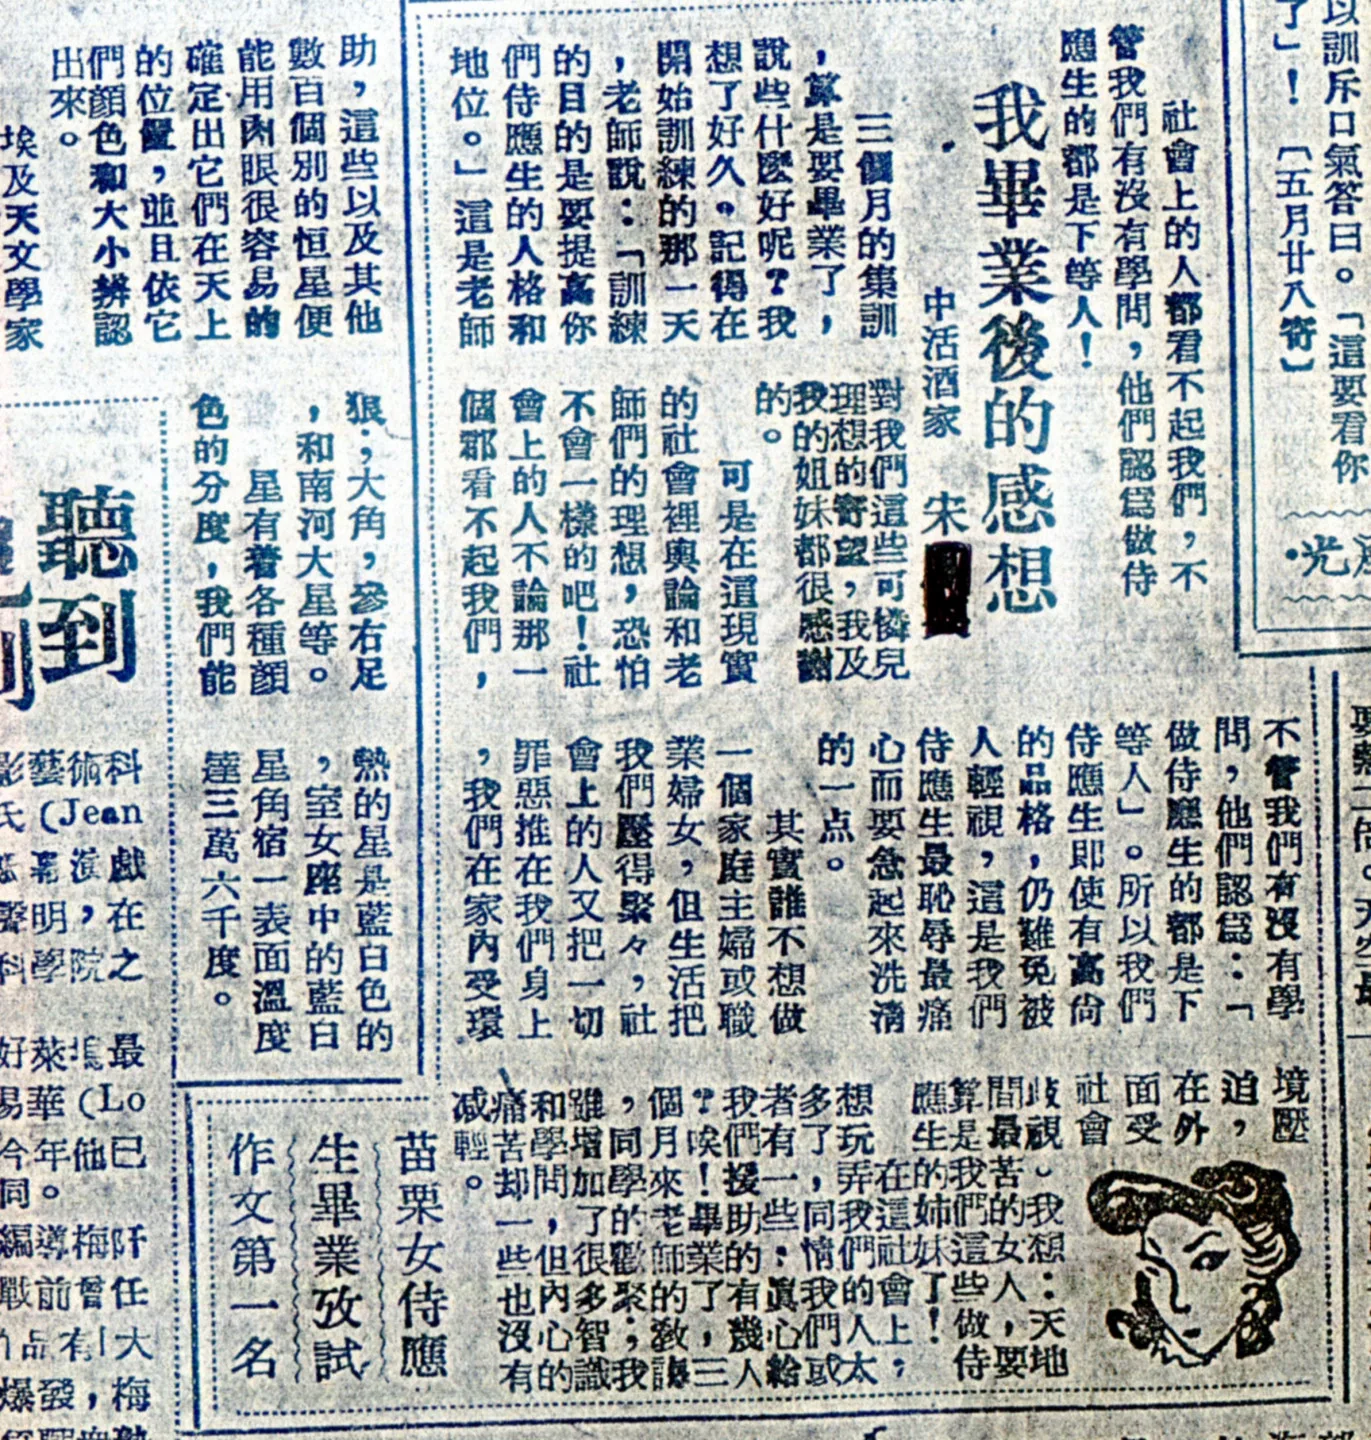 以訓斥口氣答曰。「這要看你
了」！〔五月廿八寄〕
光·
社會上的人都看不起我們，不
管我們有沒有學問，他們認爲做侍
應生的都是下等人！
我畢業後的感想
中活酒家　宋
三個月的集訓
，算是要畢業了，
說些什麼好呢？我
想了好久。記得在
開始訓練的那一天
，老師說：「訓練
的目的是要提高你
們侍應生的人格和
地位。」這是老師
對我們這些可憐兒
理想的寄望，我及
我的姐妹都很感謝
的。
可是在這現實
的社會裡輿論和老
師們的理想，恐怕
不會一樣的吧！社
會上的人不論那一
個都看不起我們，
不管我們有沒有學
問，他們認爲：「
做侍應生的都是下
等人」。所以我們
侍應生即使有高尙
的品格，仍難免被
人輕視，這是我們
侍應生最恥辱最痛
心而要急起來洗清
的一点。
其實誰不想做
一個家庭主婦或職
業婦女，但生活把
我們壓得緊々，社
會上的人又把一切
罪惡推在我們身上
，我們在家內受環
境壓
迫，
在外
面受
社會
歧視。我想：天地
間最苦的女人，要
算是我們這些做侍
應生的姉妹了！
在這社會上，
想玩弄我們的人太
多了，同情我們或
者有一些：眞心給
我們援助的有幾人
？唉！畢業了，三
個月來老師的敎誨
，同學的歡聚；我
雖增加了很多智識
和學問，但內心的
痛苦却一些也沒有
減輕。
苗栗女侍應
生畢業攷試
作文第一名
助，這些以及其他
數百個別的恒星便
能用肉眼很容易的
確定出它們在天上
的位置，並且依它
們顏色和大小辨認
出來。
埃及天文學家
狼；大角，參右足
，和南河大星等。
星有着各種顏
色的分度，我們能
熱的星是藍白色的
，室女座中的藍白
星角宿一表面溫度
達三萬六千度。
聽到
科　戲在之
術(Jean　演，院
藝　明學
最　(Lo　已
萊華年他
好　今同。
任大梅